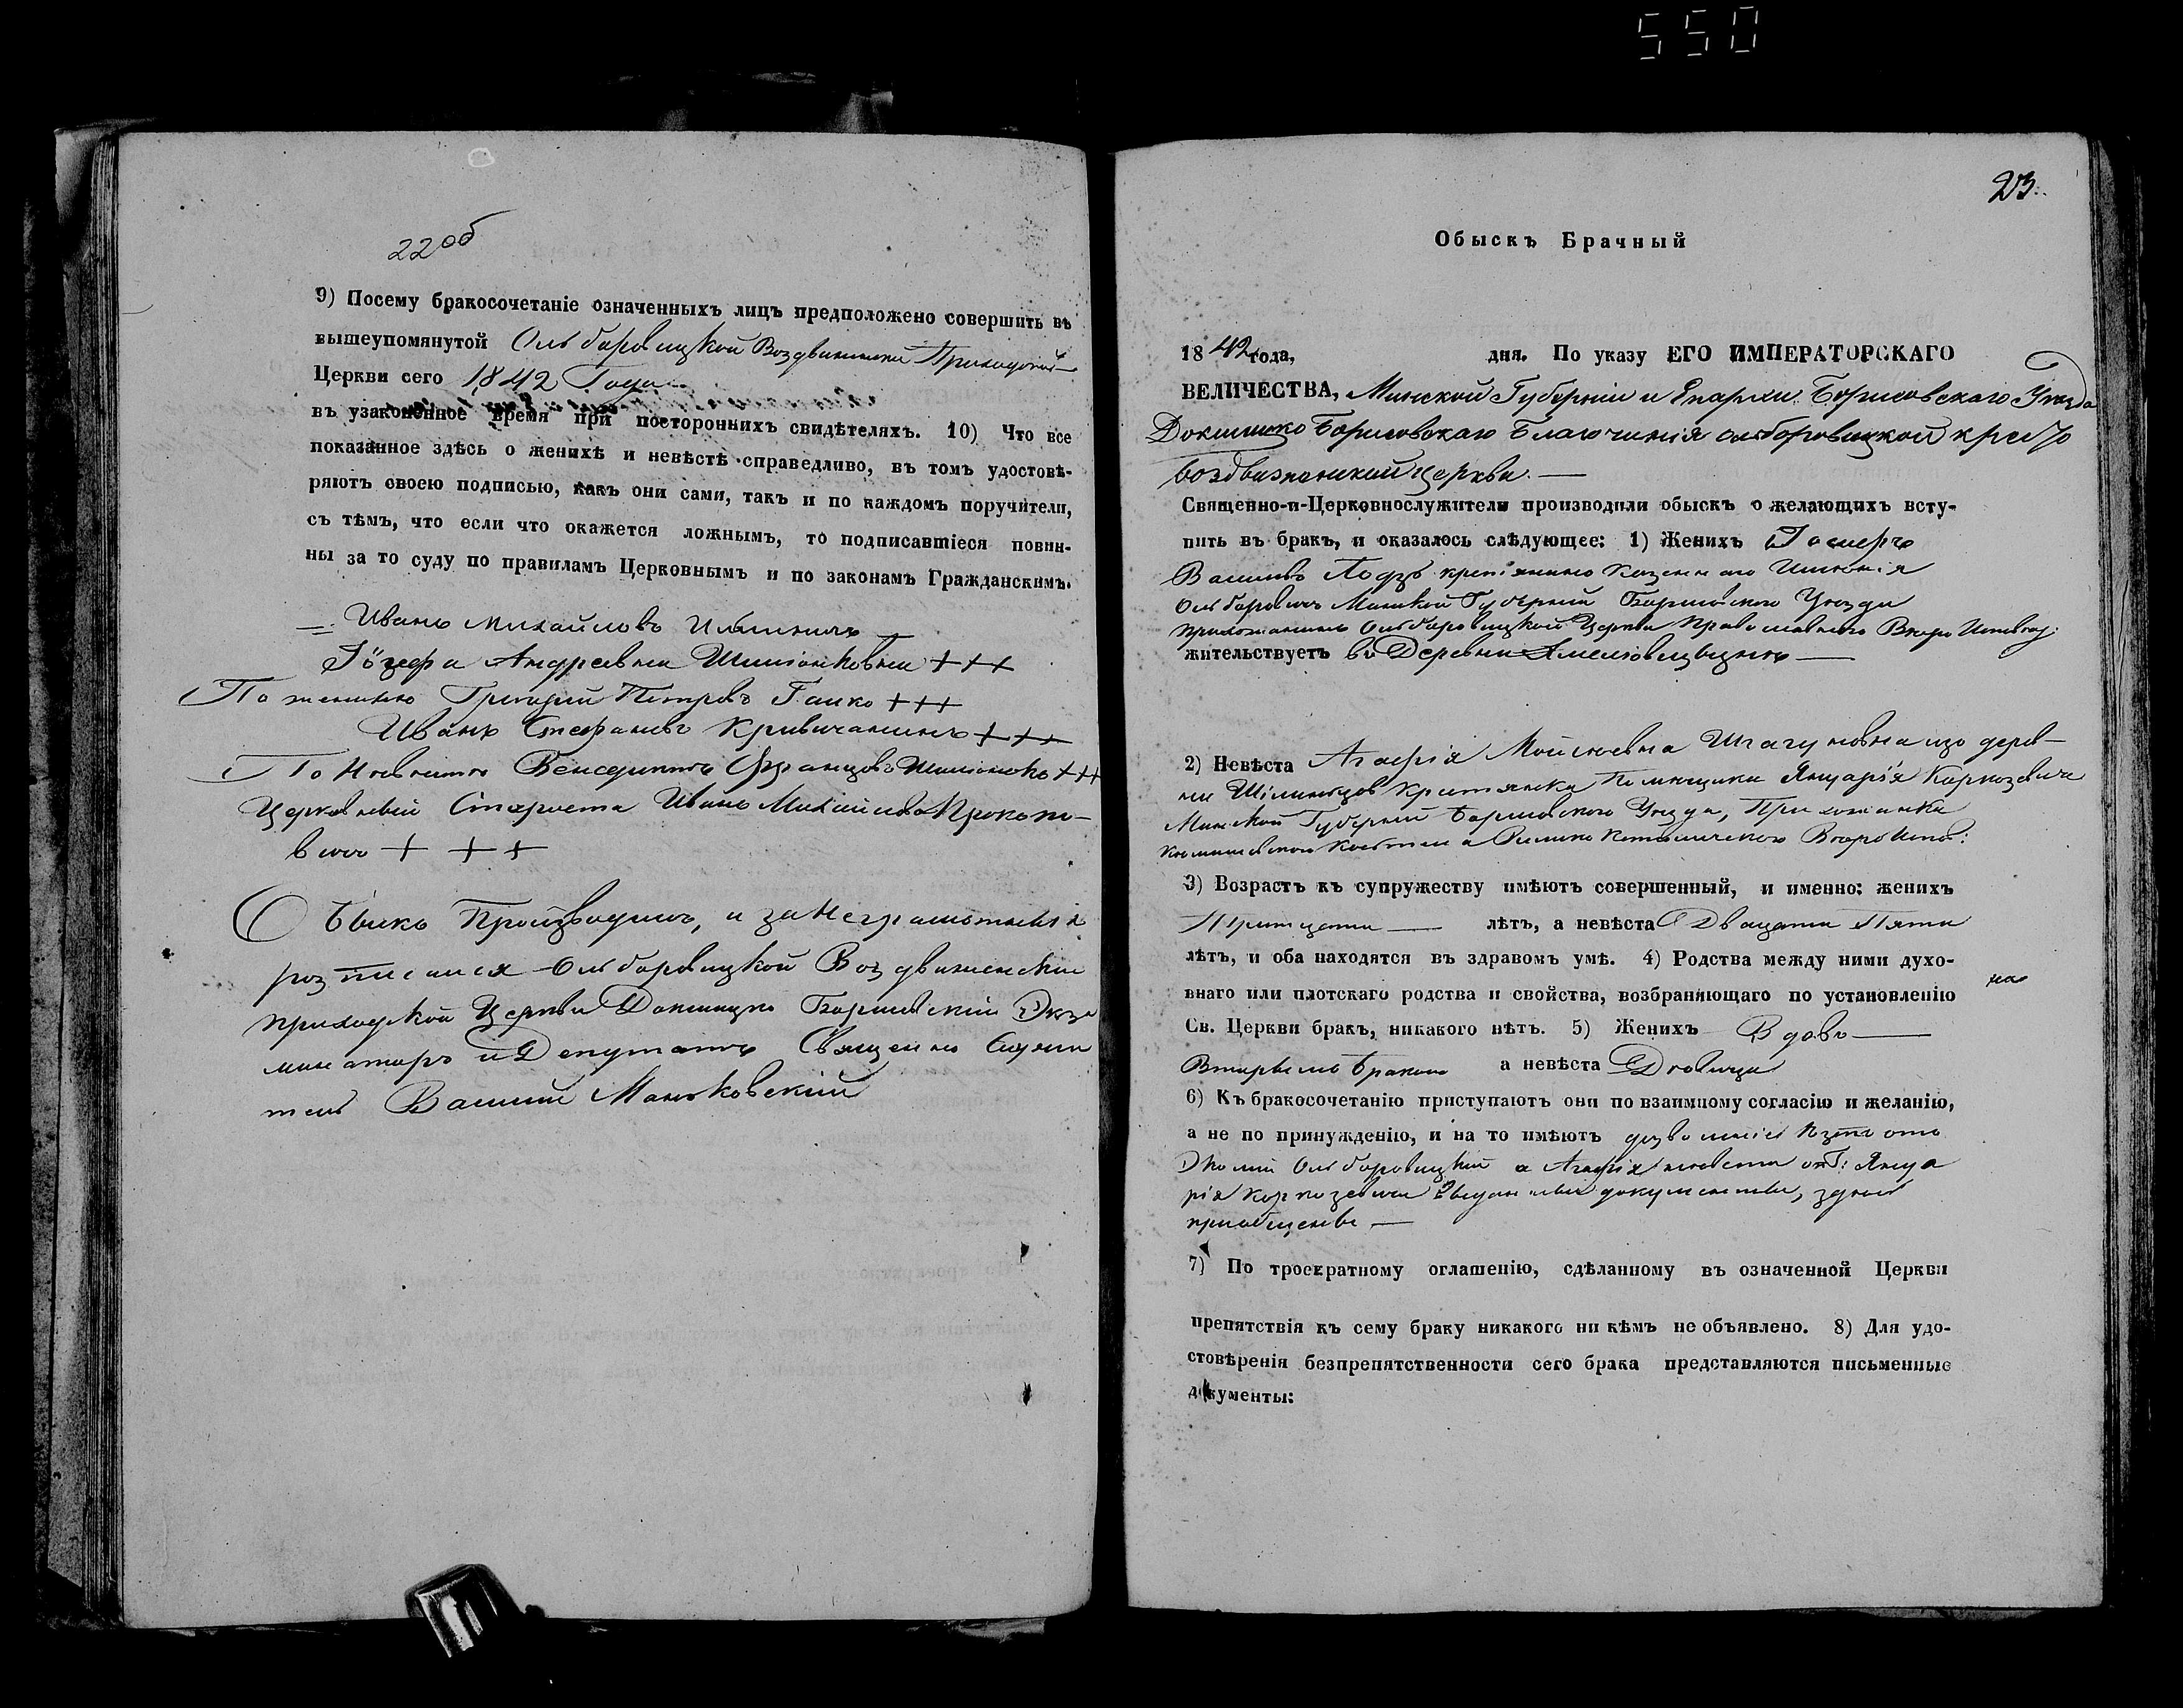 550
22об
9) Посему бракосочетаніе означенныхъ лицъ предположено совершить въ
вышеупомянутой Ольборовицкой Воздвиженской Приходской
Церкви сего 1842 Года
въ узаконенное время при постороннихъ свидѣтеляхъ. 10) Что все
показанное здѣсь о женихѣ и невѣстѣ справедливо, въ томъ удостовѣ-
ряютъ своею подписью, какъ они сами, такъ и по каждомъ поручители,
съ тѣмъ, что если что окажется ложнымъ, то подписавшіеся повин-
ны за то суду по правиламъ Церковнымъ и по законамъ Гражданскимъ.
Иванъ Михайловъ
Іозефа Андреевна Шимонковна +++
По жениху Григорий Петровъ Ганко +++
Иванъ Стефановъ Кривичанинъ +++
По Невѣстѣ Венедиктъ Францовъ Шимонокъ +++
Церковный Староста Иванъ Михайловъ Прокопо-
вичъ + + +
Обыскъ Производилъ, и за неграмотныхъ
розписался Ольборовицкой Воздвиженской
приходской Церкви Докшицко Борисовскій Экза
минаторъ и Депутатъ Священно Служи
тель Василий Маньковский
23.
Обыскъ Брачный
1842 года, дня. По указу ЕГО ИМПЕРАТОРСКАГО
ВЕЛИЧЕСТВА, Минской Губерніи и Епархіи Борисовскаго Уѣзда
Докшицко Борисовскаго Благочинія Ольборовицкой кресто
воздвиженской церкви. —
Священно-и-Церковнослужители производили обыскъ о желающихъ всту-
пить въ бракъ, и оказалось слѣдующее: 1) Женихъ
Васильевъ крестьянинъ казеннаго Имѣнія
Ольборовичъ Минской Губерніи Борисовскаго Уѣзда
прихожанинъ Ольборовицкой Церкви Православнаго Вѣро Исповѣд:
жительствуетъ въ Деревни
2) Невѣста Агафія Мойсеевна Шагуновна изъ дерев-
ни крестьянка Помѣщика Януарія Карнозевича
Минской Губерніи Борисовскаго Уѣзда, Прихожанка
Костела Римско Католическаго Вѣро Испов:
3) Возрастъ къ супружеству имѣютъ совершенный, и именно: женихъ
Тритцати — лѣтъ, а невѣста Двацати Пяти
лѣтъ, и оба находятся въ здравомъ умѣ. 4) Родства между ними духо-
внаго или плотскаго родства и свойства, возбраняющаго по установленію
Св. Церкви бракъ, никакого нѣтъ. 5) Женихъ Вдовъ —
Вторымъ бракомъ а невѣста Дѣвица
6) Къ бракосочетанію приступаютъ они по взаимному согласію и желанію,
а не по принужденію, и на то имѣютъ
Ольборовицкий а Агафія невѣста отъ Г: Януа
рія Карнозевича документы,
приобщены —
7) По троекратному оглашенію, сдѣланному въ означенной Церкви
препятствія къ сему браку никакого ни кѣмъ не объявлено. 8) Для удо-
стовѣренія безпрепятственности сего брака представляются письменные
документы: